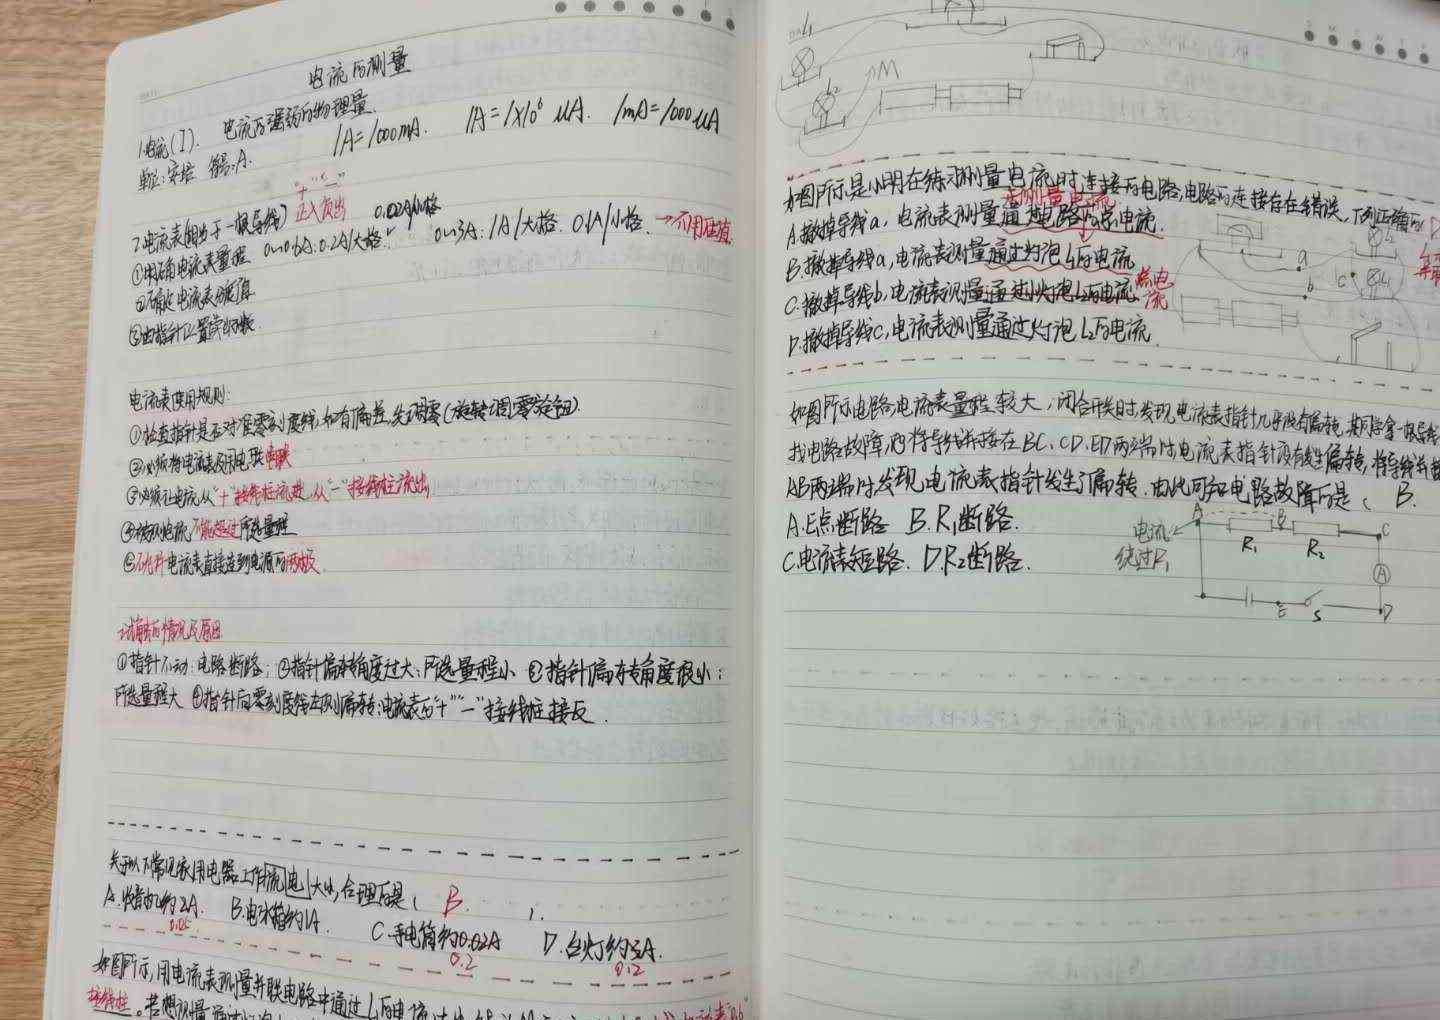 电流的测量
1.电流(I). 电流的强弱的物理量.
单位:安培 符号:A. 1A=1000mA. 1A=1×10⁶ μA. 1mA=1000μA
"+" "-"
2.电流表(相当于一根导线) 正入负出
①明确电流表量程 0~0.6A:0.2A/大格. 0.02A/小格 0~3A:1A/大格. 0.1A/小格. →不用估值.
②确定电流表分度值
③由指针位置读出示数.
电流表使用规则:
①检查指针是否对准零刻度线,如有偏差,先调零(旋转调零旋钮).
②必须将电流表及用电器串联
③必须让电流从"+"接线柱流进,从"-"接线柱流出
④被测电流不能超过所选量程
⑤不允许电流表直接连到电源的两极.
试触的情况及原因
①指针不动:电路断路; ②指针偏转角度过大:所选量程小 ③指针偏转角度很小:
所选量程大 ④指针向零刻度线左侧偏转:电流表的"+""-"接线柱接反.
关于以下常见家用电器工作流电大小,合理的是( B. ).
A.收音机约2A. B.电冰箱约1A. C.手电筒约0.02A D.台灯约3A.
0.05 0.2 0.2
如图所示,用电流表测量并联电路中通过L1的电流
接线柱。若想测量通过
L1
L2
M
如图所示是小明在练习测量电流时连接的电路,电路的连接存在错误,下列正确的 D
A.撤掉导线a,电流表测量通过电路的总电流.
B.撤掉导线a,电流表测量通过灯泡L1的电流
C.撤掉导线b,电流表测量通过小灯泡L2的电流. 总电流
D.撤掉导线c,电流表测量通过灯泡L2的电流.
a
b
c
如图所示电路,电流表量程较大,闭合开关时发现电流表指针几乎没有偏转,某同学拿一根导线
找电路故障,将导线并接在BC、CD、ED两端时电流表指针没有发生偏转,将导线并接
AB两端时发现电流表指针发生了偏转.由此可知电路故障的是( B.
A.E点断路 B.R1断路.
C.电流表短路. D.R2断路.
电流
绕过R1
A B C
R1 R2
A
E S D